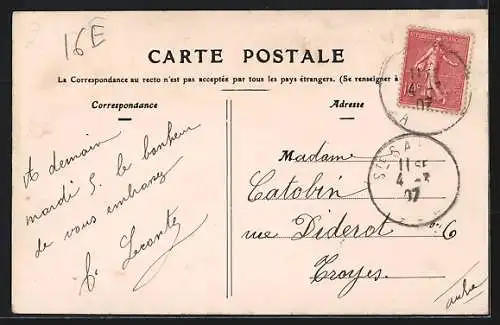 16E
CARTE POSTALE
La Correspondance au recto n'est pas acceptée par tous les pays étrangers. (Se renseigner à
Correspondance
A demain
mardi 5. le bonheur
de vous embrasser
Lecomte
Adresse
Madame
Catobin
rue Diderot 6
Troyes.
aube
11
4
07
11
4
07